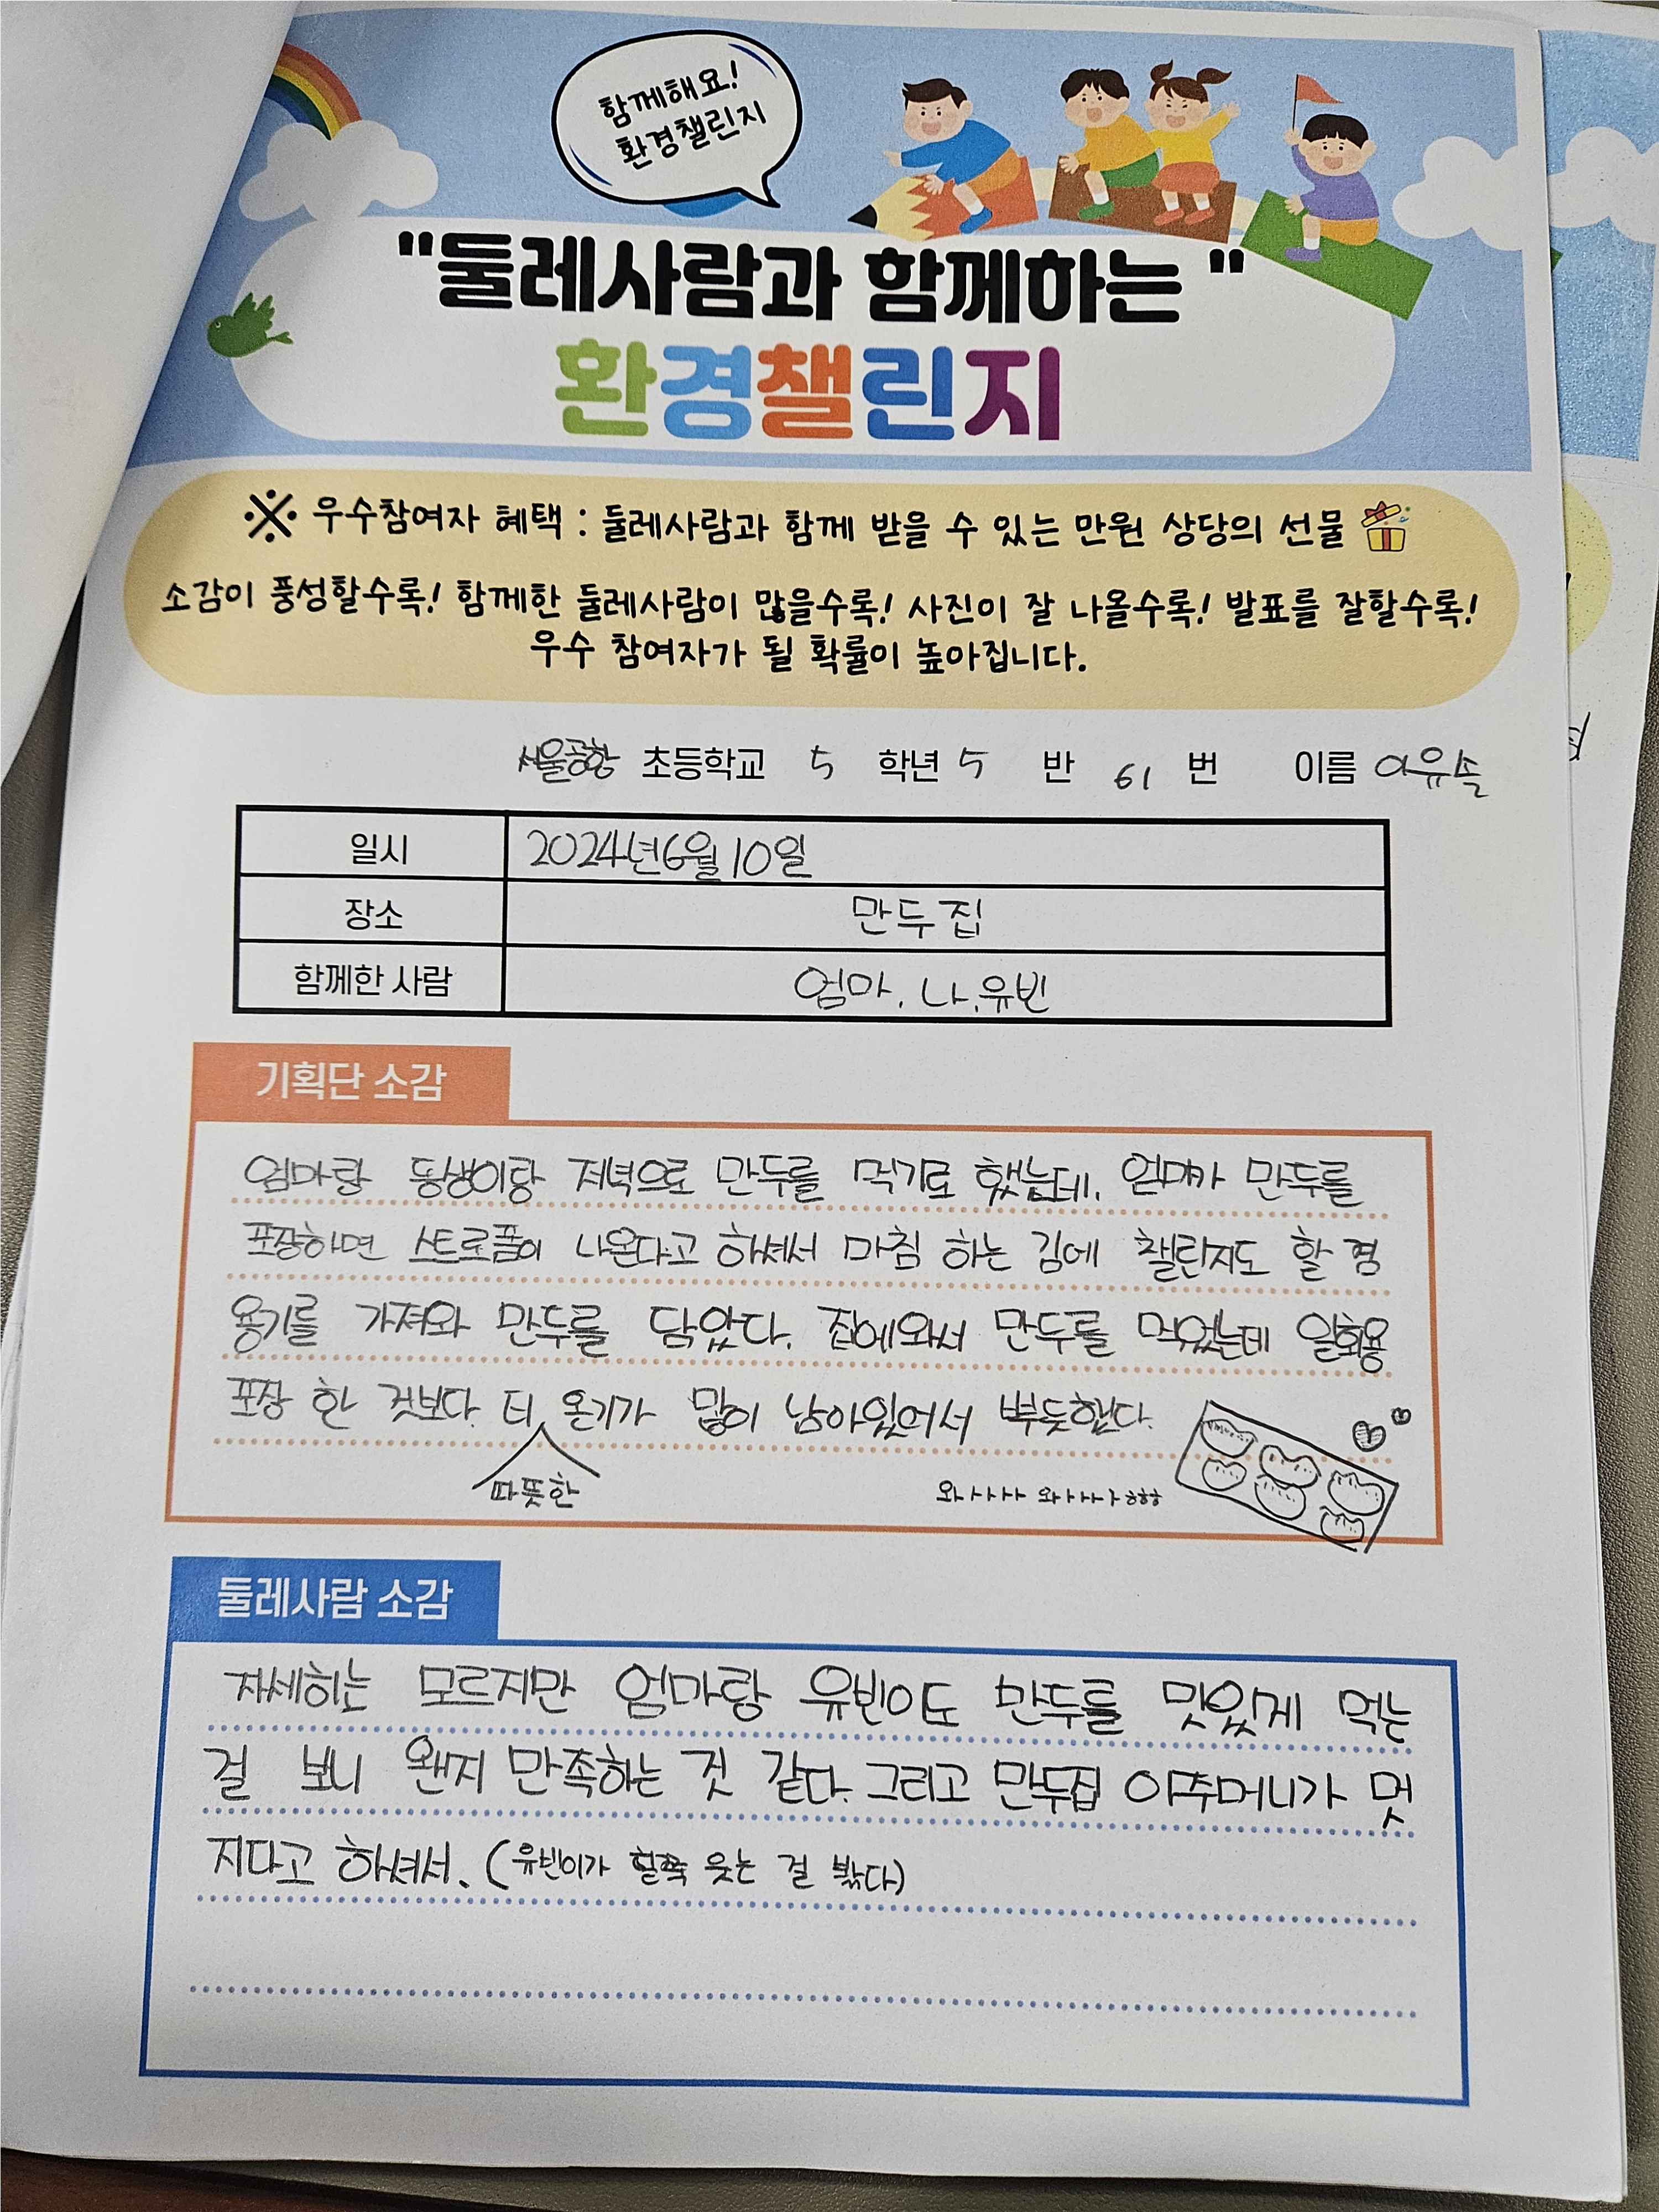 함께해요!
환경챌린지
"둘레사람과 함께하는"
환경챌린지
※ 우수참여자 혜택 : 둘레사람과 함께 받을 수 있는 만원 상당의 선물
소감이 풍성할수록! 함께한 둘레사람이 많을수록! 사진이 잘 나올수록! 발표를 잘할수록!
우수 참여자가 될 확률이 높아집니다.
서울공항 초등학교 5 학년 5 반 61 번 이름
일시 2024년6월10일
장소 만두집
함께한 사람 엄마, 나, 유빈
기획단 소감
엄마랑 동생이랑 저녁으로 만두를 먹기로 했는데, 엄마가 만두를
포장하면 스트로폼이 나온다고 하셔서 마침 하는 김에 챌린지도 할 겸
용기를 가져와 만두를 담았다. 집에와서 만두를 먹었는데 일회용
포장 한 것보다. 더 온기가 많이 남아있어서 뿌듯했다.
따뜻한
와ㅏㅏㅏㅏ 와ㅏㅏㅏㅏㅎㅎㅎ
둘레사람 소감
자세히는 모르지만 엄마랑 유빈이도 만두를 맛있게 먹는
걸 보니 왠지 만족하는 것 같다. 그리고 만두집 아주머니가 멋
지다고 하셔서. (유빈이가 활짝 웃는 걸 봤다)